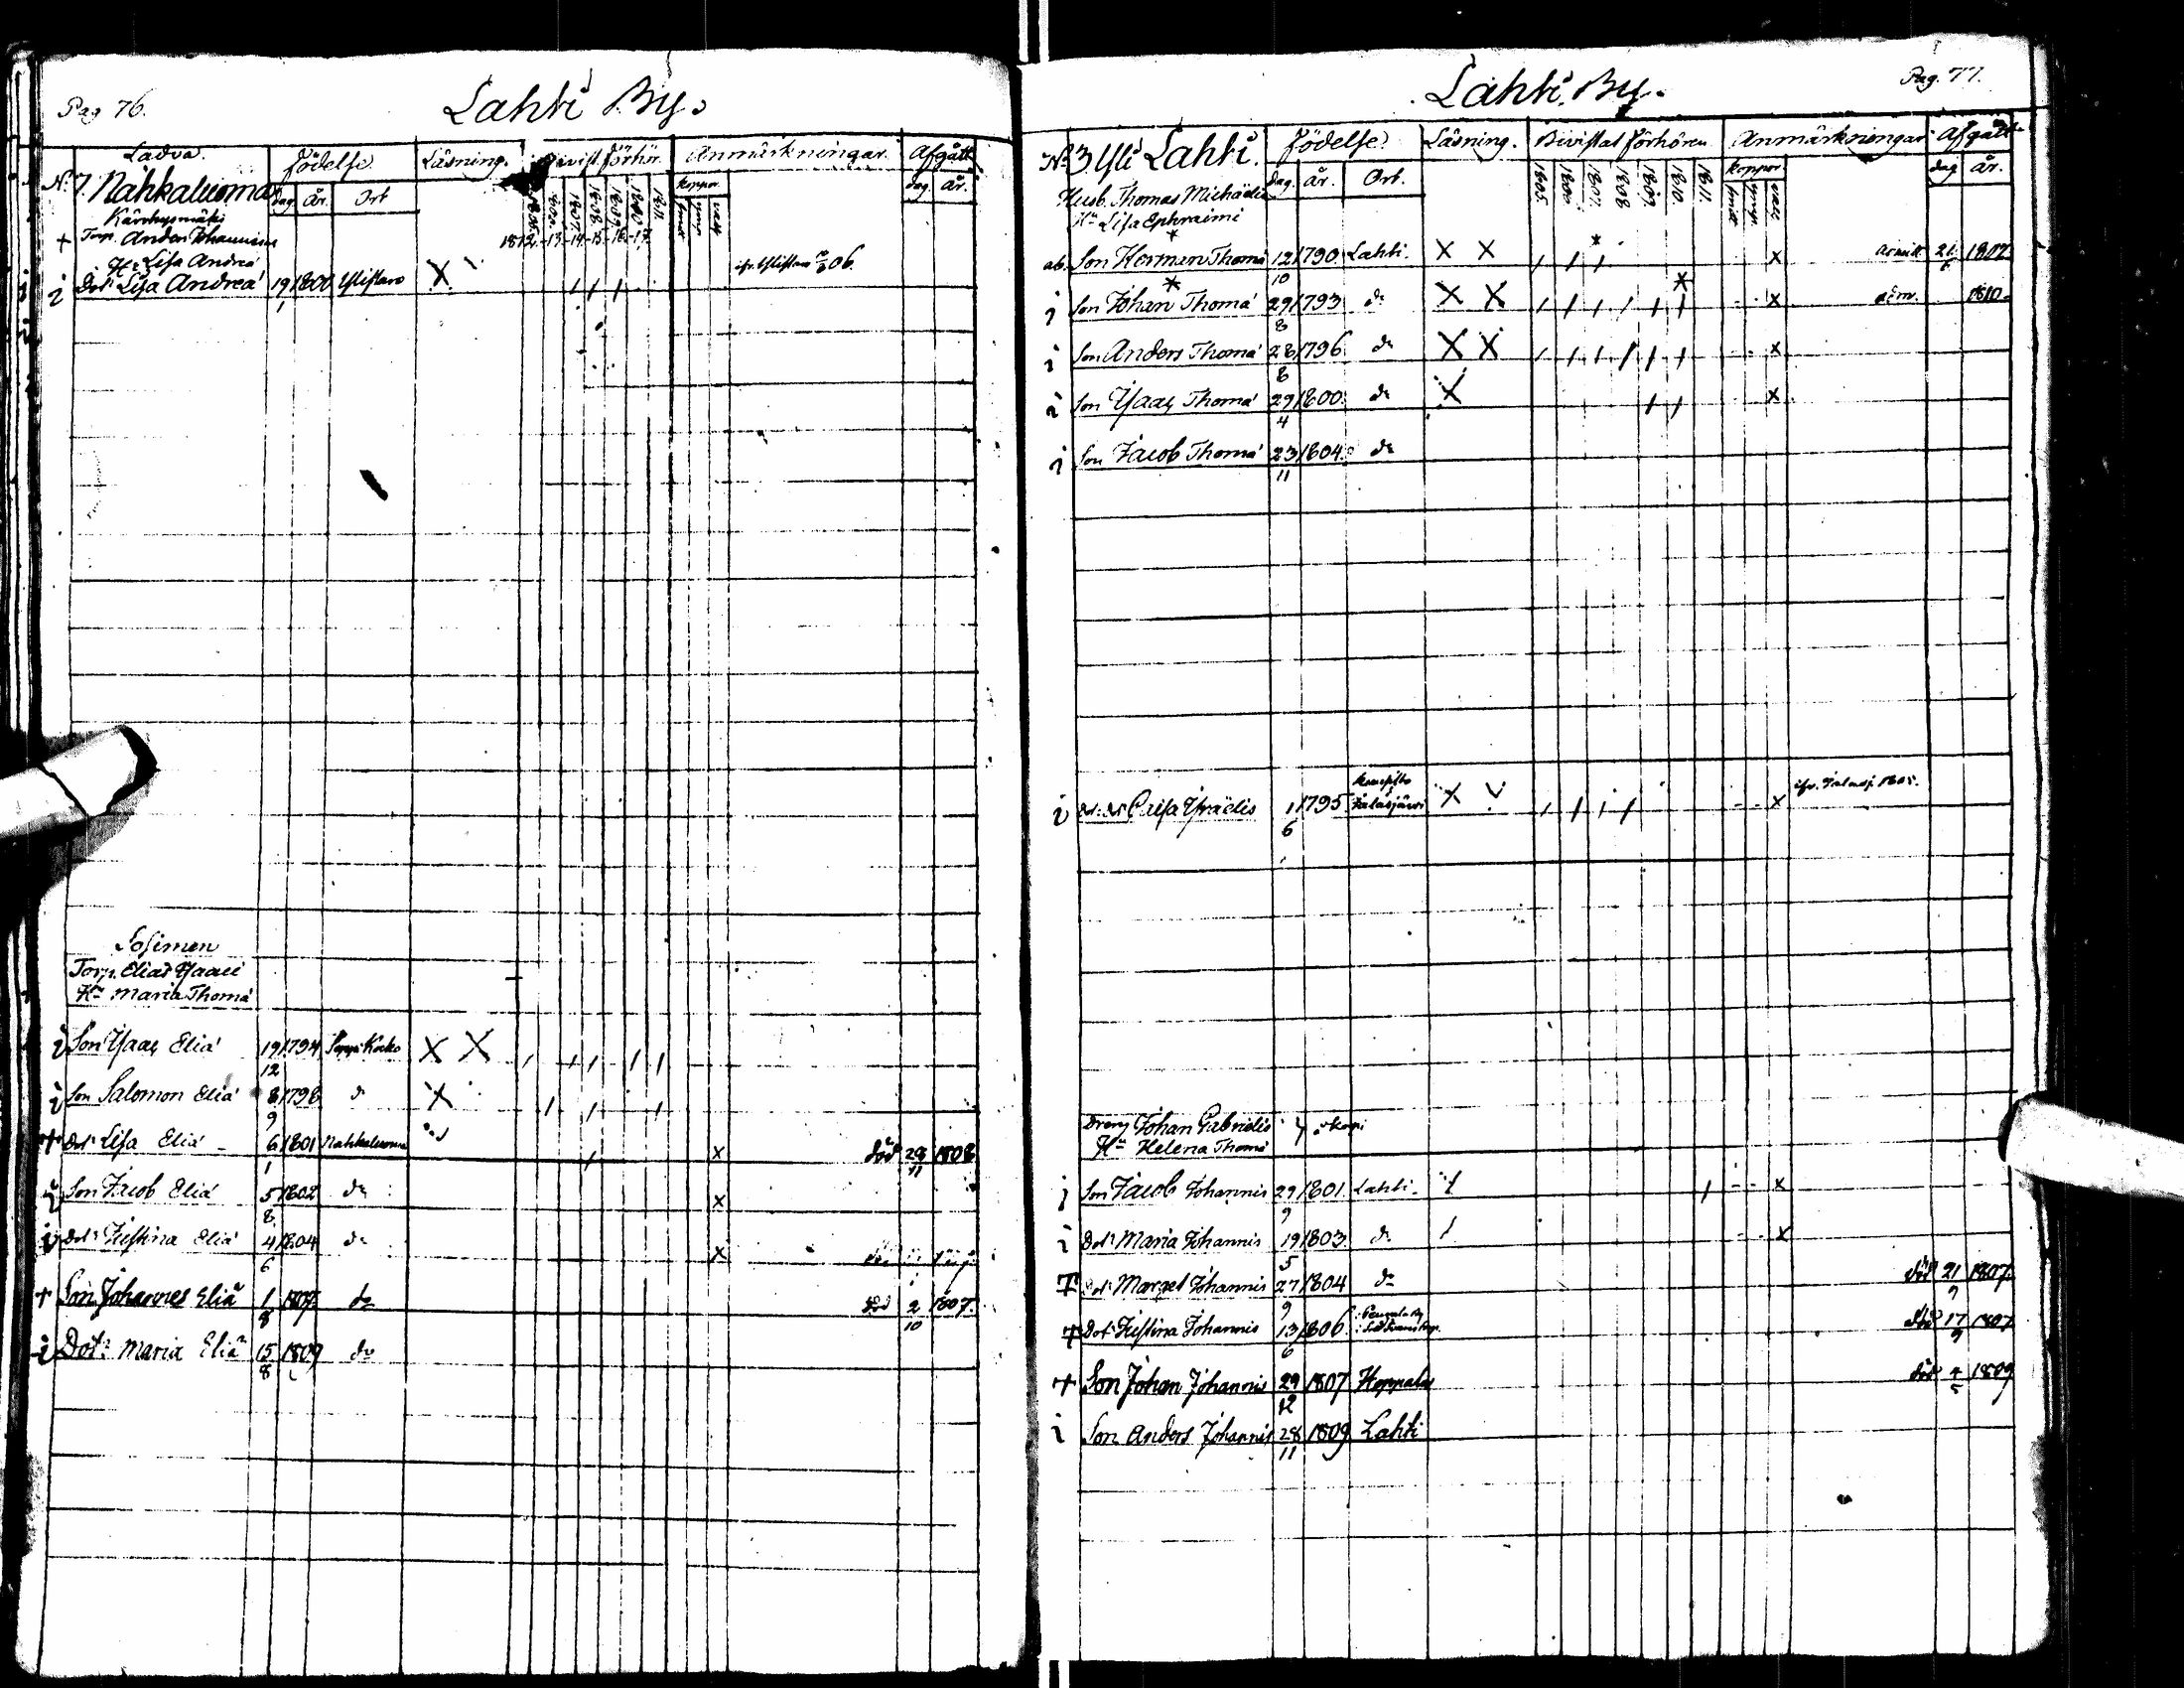 Pag 76.
Lahti By.
Ladva.
Födelse.
Läsning.
Bivist. förhör.
Anmärkningar.
Afgått
N:o 7. Nahkaluoma
dag. år. Ort
koppor
dag. år.
1805. 1806. 1807. 1808. 1809. 1810. 1811.
1812.-13-14-15-16-17
Torp. Anders Johannis
H:u Lisa Andreæ
i Dot: Lisa Andreæ 19/1 1800 Ylistaro X 06.
Torp. Elias Isaaci
H:u Maria Thomæ
i Son Isaac Eliæ 19/12 1794 X X
i Son Salomon Eliæ 8/9 1798 d:o X
+ Dot: Lisa Eliæ 6/1 1801 Nahkaluoma x död 28/11 1808
i Son Jacob Eliæ 5/8 1802 d:o x
i Dot: Kristina Eliæ 4/6 1804 d:o x
+ Son Johannes Eliæ 1/8 1807 do död 2/10 1807.
i Dot: Maria Eliæ 15/8 1809 do
Lahti By.
Pag. 77.
N:o 3 Yli Lahti.
Födelse.
Läsning.
Bivistat förhören
Anmärkningar
Afgått
dag. år. Ort.
koppor
dag år.
1805. 1806. 1807. 1808 1809. 1810 1811.
Husb. Thomas Michaelis
H:u Lisa Ephraimi
Son Herman Thomæ 12/10 1790 Lahti. X X x 1807
i Son Johan Thomæ 29/8 1793 do X X x 1810
i Son Anders Thomæ 28/8 1796 do X X x
i Son Isaac Thomæ 29/4 1800 do X x
i Son Jacob Thomæ 23/11 1804 do
i Caisa Israelis 1/6 1795 Jalasjärvi X x ifr. Jalasj. 1805.
Dreng Johan Gabrielis
H:u Helena Thomæ
i Son Jacob Johannis 29/9 1801. Lahti. x
i Dot: Maria Johannis 19/5 1803. do x
+ Dot: Marget Johannis 27/9 1804 do död 21/9 1807.
+ Dot: Kristina Johannis 13/6 1806. död 17/9 1807
+ Son Johan Johannis 29/12 1807 Hoppala död 4/5 1809
i Son Anders Johannis 28/11 1809 Lahti